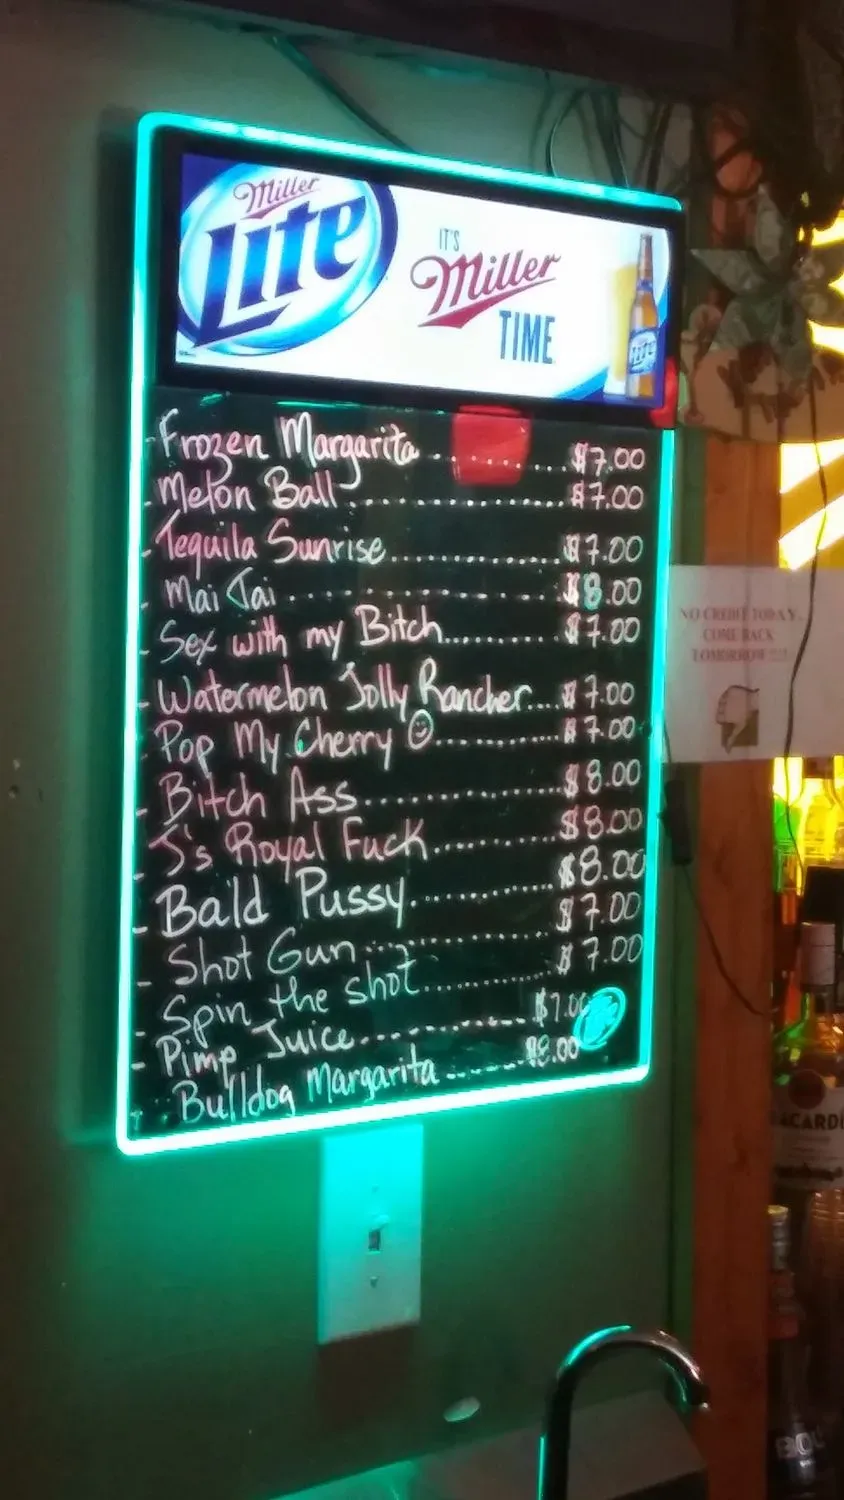 Miller
Lite
IT'S
Miller
TIME
Lite
- Frozen Margarita..........$7.00
- Melon Ball..........$7.00
- Tequila Sunrise..........$7.00
- Mai Tai..........$8.00
- Sex with my Bitch..........$7.00
- Watermelon Jolly Rancher....$7.00
- Pop My Cherry ☺..........$7.00
- Bitch Ass..........$8.00
- J's Royal Fuck..........$8.00
- Bald Pussy..........$8.00
- Shot Gun..........$7.00
- Spin the shot..........$7.00
- Pimp Juice..........$7.00
- Bulldog Margarita.......$8.00
NO CREDIT TODAY,
COME BACK
TOMORROW !!!
BACARDI